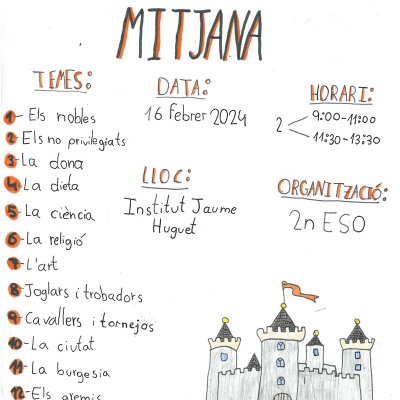 MITJANA
TEMES:
1- Els nobles
2- Els no privilegiats
3- La dona
4- La dieta
5- La ciència
6- La religió
7- L'art
8- Joglars i trobadors
9- Cavallers i tornejos
10- La ciutat
11- La burgesia
12- Els gremis
DATA:
16 febrer 2024
LLOC:
Institut Jaume
Huguet
HORARI:
2
9:00-11:00
11:30-13:30
ORGANITZACIÓ:
2n ESO